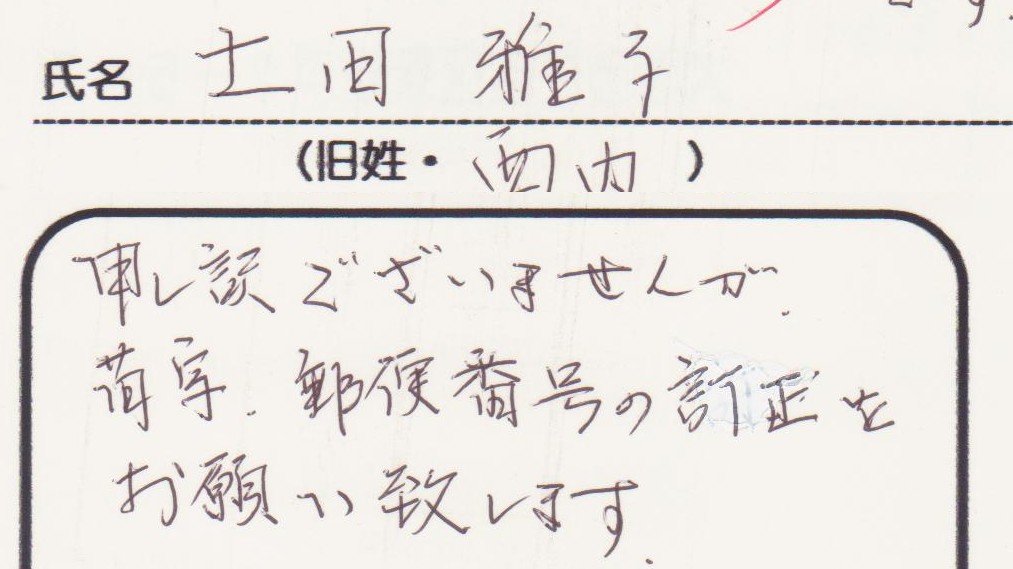 氏名 土田 雅子
(旧姓・西内)
申し訳ございませんが、
苗字、郵便番号の訂正を
お願い致します。